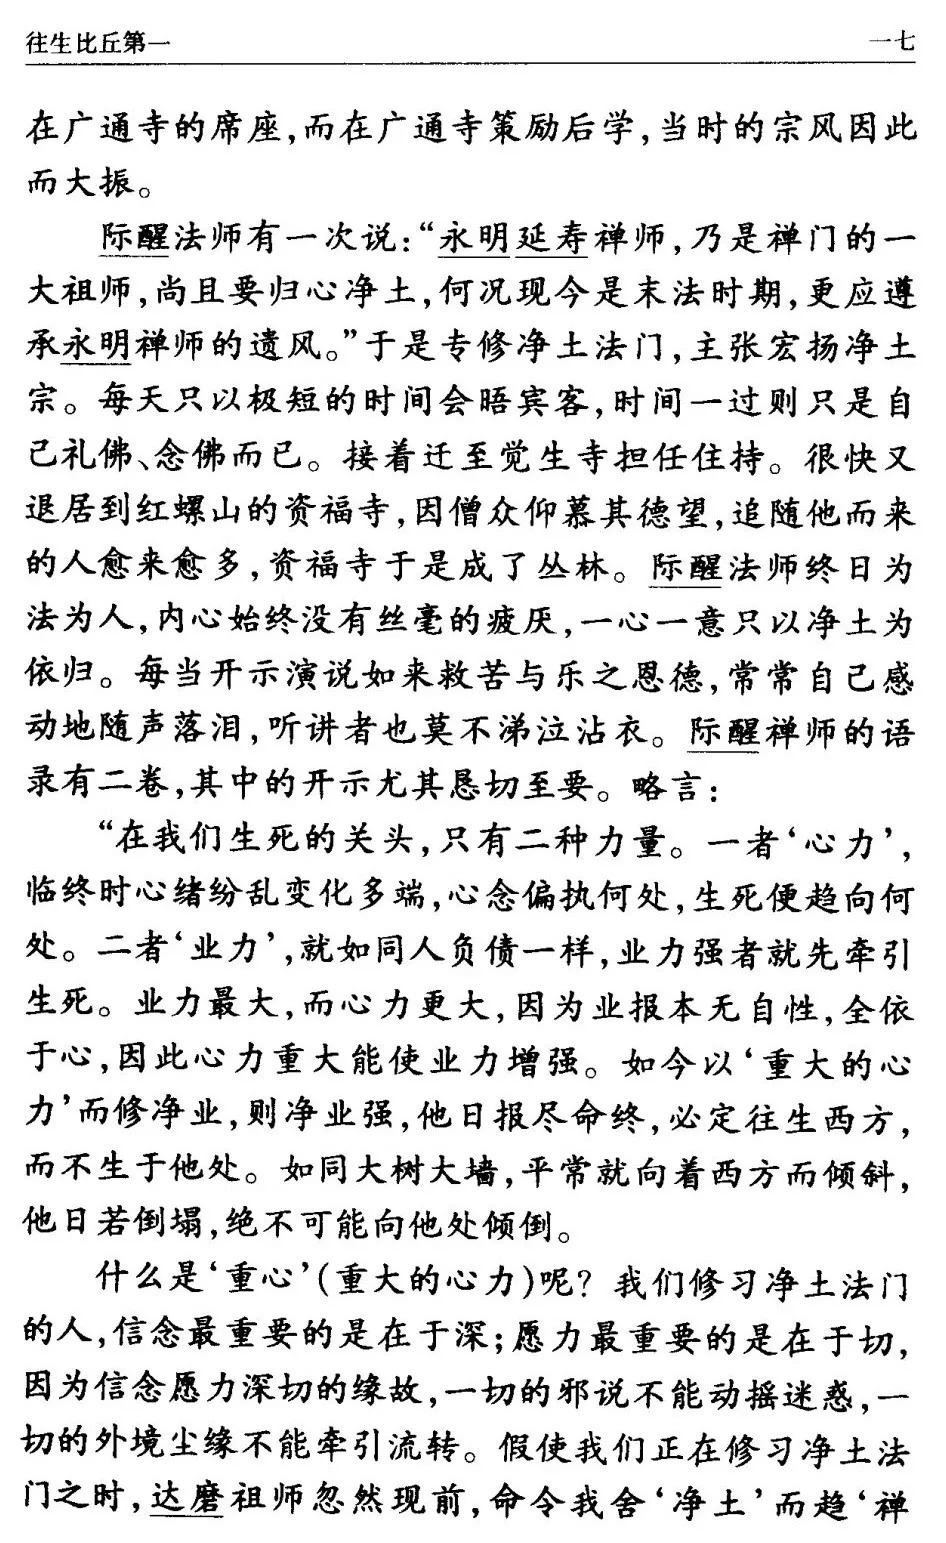 往生比丘第一　一七
在广通寺的席座,而在广通寺策励后学,当时的宗风因此
而大振。
际醒法师有一次说:“永明延寿禅师,乃是禅门的一
大祖师,尚且要归心净土,何况现今是末法时期,更应遵
承永明禅师的遗风。”于是专修净土法门,主张宏扬净土
宗。每天只以极短的时间会晤宾客,时间一过则只是自
己礼佛、念佛而已。接着迁至觉生寺担任住持。很快又
退居到红螺山的资福寺,因僧众仰慕其德望,追随他而来
的人愈来愈多,资福寺于是成了丛林。际醒法师终日为
法为人,内心始终没有丝毫的疲厌,一心一意只以净土为
依归。每当开示演说如来救苦与乐之恩德,常常自己感
动地随声落泪,听讲者也莫不涕泣沾衣。际醒禅师的语
录有二卷,其中的开示尤其恳切至要。略言:
“在我们生死的关头,只有二种力量。一者‘心力’,
临终时心绪纷乱变化多端,心念偏执何处,生死便趋向何
处。二者‘业力’,就如同人负债一样,业力强者就先牵引
生死。业力最大,而心力更大,因为业报本无自性,全依
于心,因此心力重大能使业力增强。如今以‘重大的心
力’而修净业,则净业强,他日报尽命终,必定往生西方,
而不生于他处。如同大树大墙,平常就向着西方而倾斜,
他日若倒塌,绝不可能向他处倾倒。
什么是‘重心’(重大的心力)呢?我们修习净土法门
的人,信念最重要的是在于深;愿力最重要的是在于切,
因为信念愿力深切的缘故,一切的邪说不能动摇迷惑,一
切的外境尘缘不能牵引流转。假使我们正在修习净土法
门之时,达磨祖师忽然现前,命令我舍‘净土’而趋‘禅